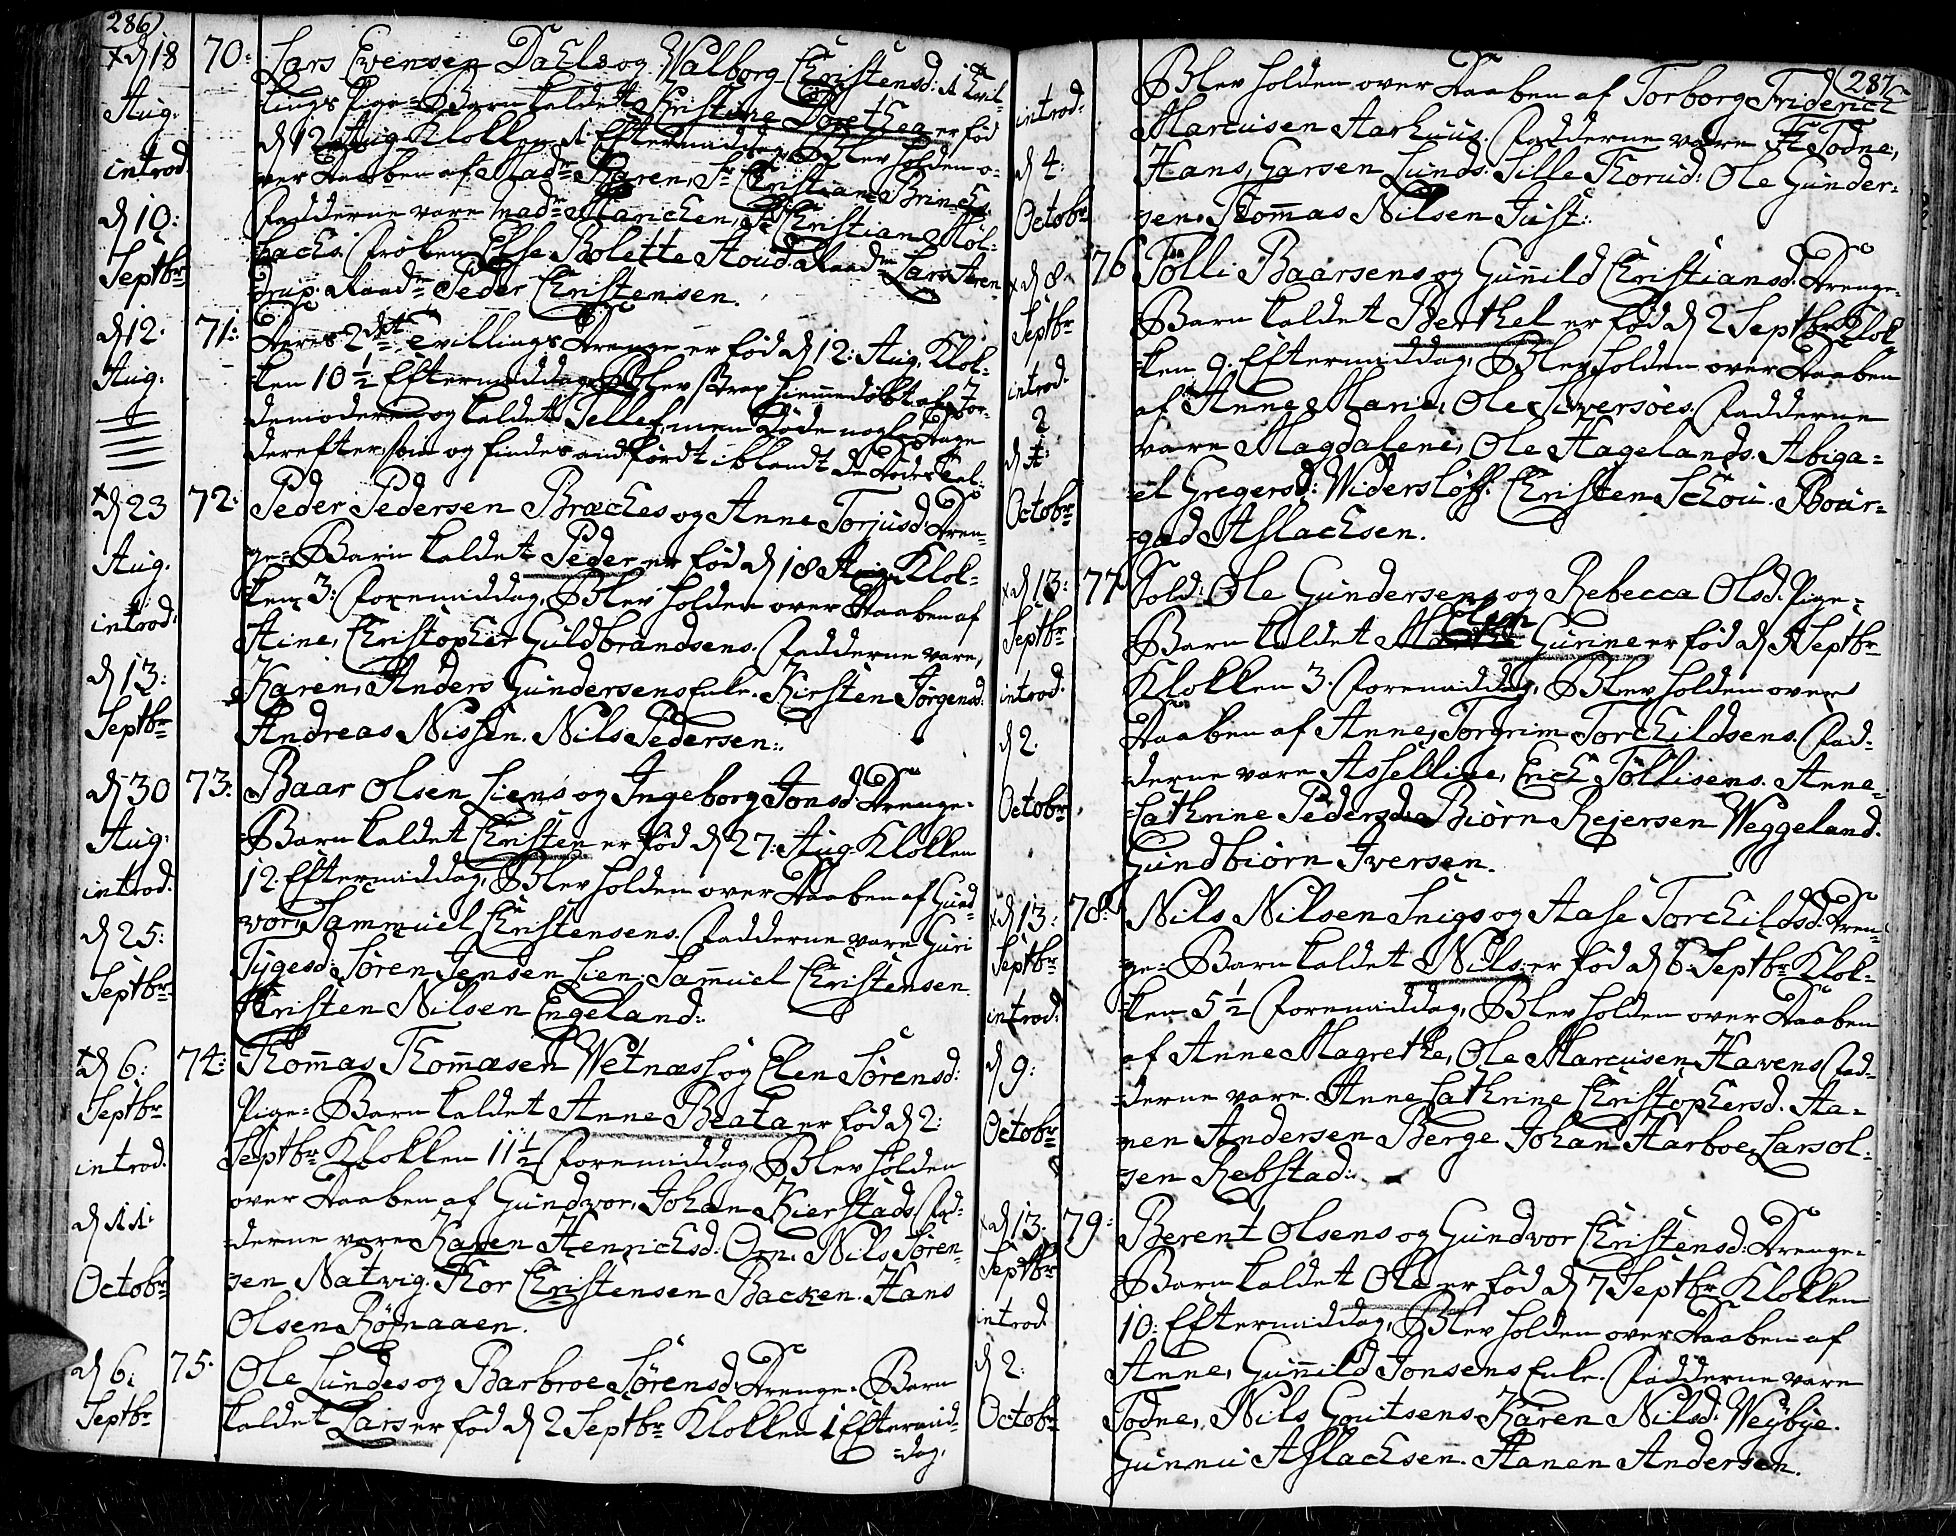 286)
x d 18 Aug: introd. d 10: Septbr
70: Lars Evensen Daels og Walborg Christensd: 1 Tvil-
lings Pige-Barn kaldet Kristine Dorethea er fød
d 12 Aug. Klokken 1 Eftermiddag, Blev holden o-
ver Daaben af Madme Karen, Sr Christian Brinchs.
Fadderne vare Madme Marichen, Sr Christian Möl-
bachs. Frøken Else Bolette Houd. Lars Aren-
drup. Peder Christensen.
d 12. Aug:
71: Deres 2det Tvillings Drenge er fød d 12: Aug. Klok-
ken 10 1/2 Eftermiddag, Blev strax hiemmedøbt af Jor-
demoderen og kaldet Tellef, men døde nogle Dage
derefter, som og findes indført iblandt de Dødes Tal:
x d 23 Aug. introd: d 13: Septbr
72: Peder Pedersen Braches og Anne Torjusd: Dren-
ge-Barn kaldet Peder er fød d 18 Aug. Klok-
ken 3: Formiddag, Blev holden over Daaben af
Stine, Christopher Guldbrandsens. Fadderne vare,
Karen, Anders Gundersens Enke. Kirsten Jørgensd.
Andreas Nissen. Nils Pedersen:.
d 30 Aug: introd. d 25: Septbr
73: Baar Olsen Liens og Ingeborg Jonsd: Drenge-
-Barn kaldet Christen er fød d 27: Aug Klokken
12: Eftermiddag, Blev holden over Daaben af Gund-
vor, Sammuel Christensens. Fadderne vare Guri
Tygesd: Søren Jensen Lien. Sammuel Christensen.
Christen Nilsen Engeland:
x d 6: Septbr introd. d 11: Octobr
74: Thommas Thommasen Wetnæs og Elen Sørensd:
Pige-Barn kaldet Anne Beata er fød d 2:
Septbr Klokken 11 1/2 Formiddag, Blev holden
over Daaben af Gundvor, Johan Kierstads. Fad-
derne vare Karen Henrichsd: Orn. Nils Søren-
sen Natvig. Thor Christensen Backen. Hans
Olsen Røjnaaen.
d 6: Septbr
75. Ole Lundes og Barbroe Sørensd: Drenge-Barn
kaldet Lars er fød d 2 Septbr Klokken 1 Eftermid-
-dag,
287
introd: d 4: Octobr
Blev holden over Daaben af Torborg, Friderich
Marcusen Aarhuus. Fadderne vare Todne,
Hans, Garsen Lunds. Sille Thorud: Ole Gunder-
sen. Thommas Nilsen Just:
x d 8. Septbr introd. d 2 Octobr
76 Tölli Baarsens og Gunnild Christiansd: Drenge-
Barn kaldet Berthel er fød d 2 Septbr Klok
ken 9. Eftermiddag, Blev holden over Daaben
af Anne Marie, Ole Siversøes. Fadderne
vare Magdalene, Ole Hagelands. Abiga-
el Gregersd: Widersløff. Christen Schou. Roar-
gad Aslachsen.
x d 13: Septbr introd. d 2. Octobr
77 Sold: Ole Gundersens og Rebecca Olsd: Pige-
Barn kaldet Elen Gurine er fød d 5 Septbr
Klokken 3. Formiddag, Blev holden over
Daaben af Anne, Torgrim Torchildsens. Fad-
derne vare Asselline, Erich Töllisens. Anne-
Cathrine Pedersd. Biørn Rejersen Weggeland.
Gundbiørn Iversen.
x d 13: Septbr introd: d 9: Octobr
78: Nils Nilsen Snigs og Aase Torchildsd: Dren-
ge-Barn kaldet Nils er fød d 6 Septbr Klok-
ken 5 1/2 Formiddag, Blev holden over Daaben
af Anne Magrethe, Ole Marcusen Havens. Fad-
derne vare. Anne Cathrine Christophersd. Ha-
nen Andersen Berge. Johan Aarboe. Lars Ol-
sen Rebstad:.
x d 13: Septbr introd. d 2: Octobr
79: Berent Olsens og Gundvor Christensd: Drenge-
Barn kaldet Ole er fød d 7 Septbr Klokken
10: Eftermiddag, Blev holden over Daaben af
Anne, Gunnild Jonsens Enke. Fadderne vare
Todne, Nils Goutsens. Karen Nilsd: Weybye.
Gunnu Aslachsen. Hanen Andersen.